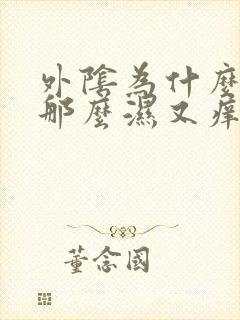 外陰為什麼
那麼濕又痒
董念國